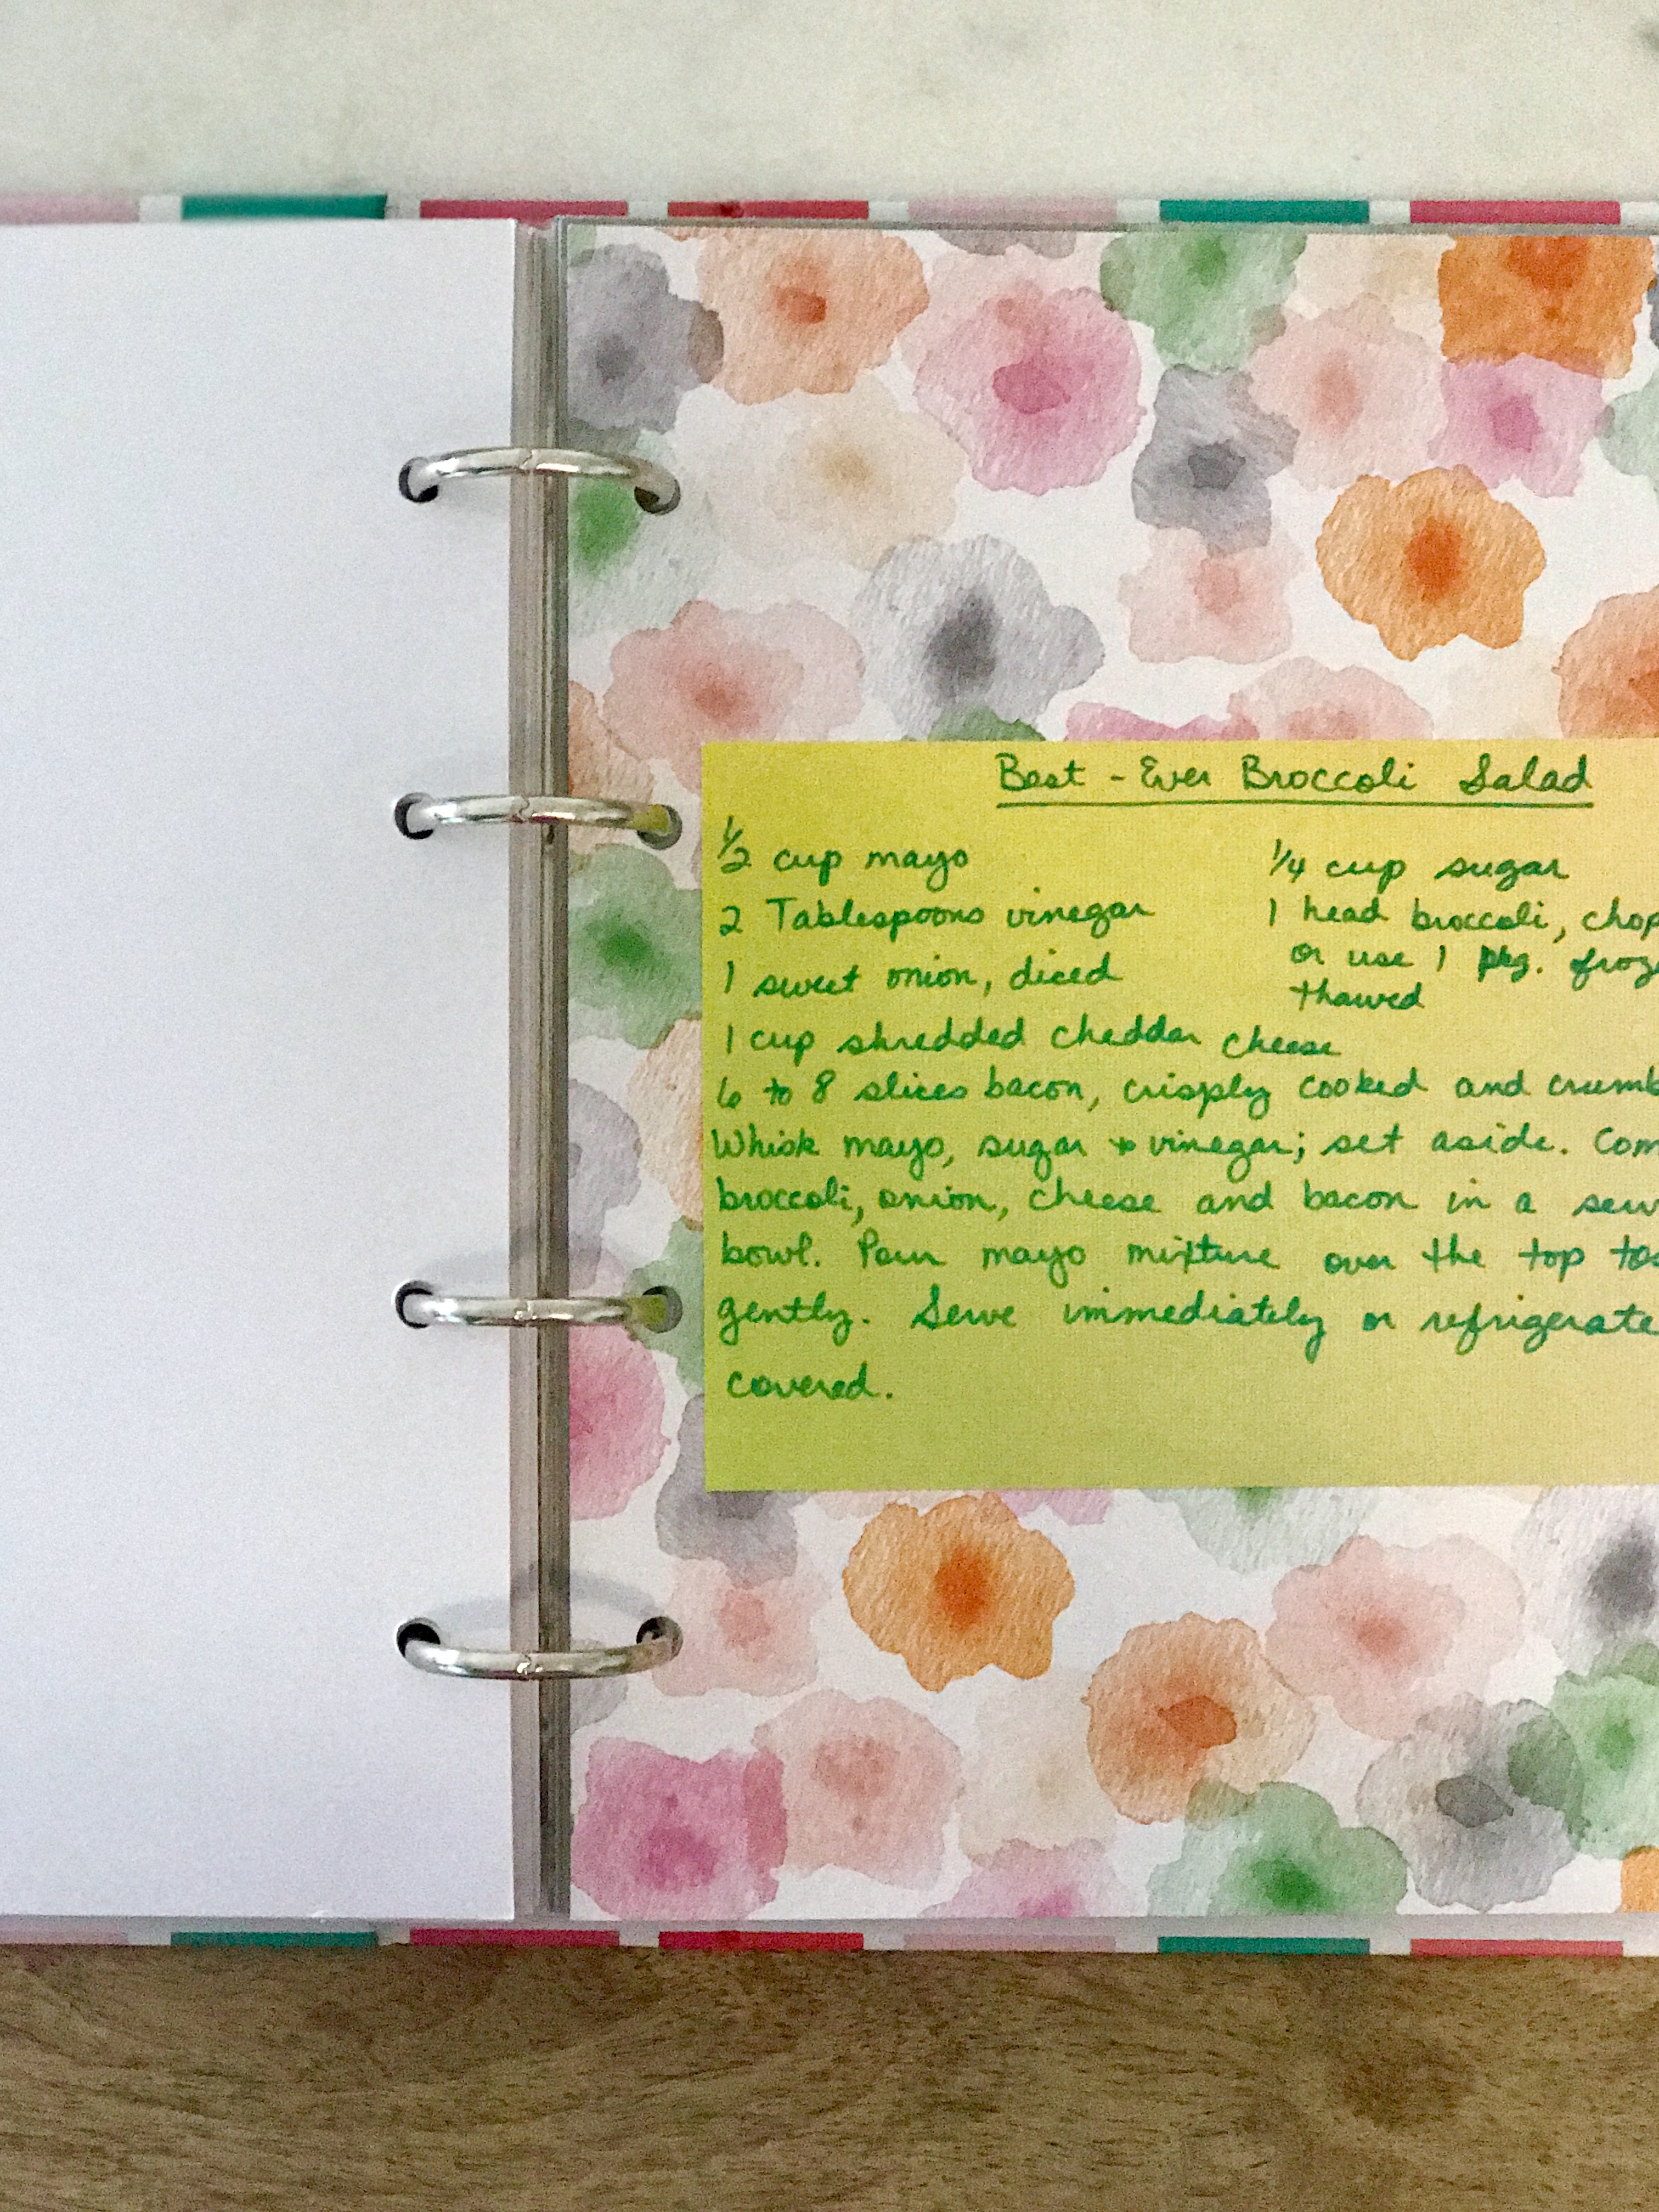 Best-Ever Broccoli Salad
1/2 cup mayo
1/4 cup sugar
2 Tablespoons vinegar
1 head broccoli, chop
1 sweet onion, diced
or use 1 pkg. froze
thawed
1 cup shredded cheddar cheese
6 to 8 slices bacon, crisply cooked and crumb
Whisk mayo, sugar + vinegar; set aside. Com
broccoli, onion, cheese and bacon in a serv
bowl. Pour mayo mixture over the top tos
gently. Serve immediately or refrigerate
covered.